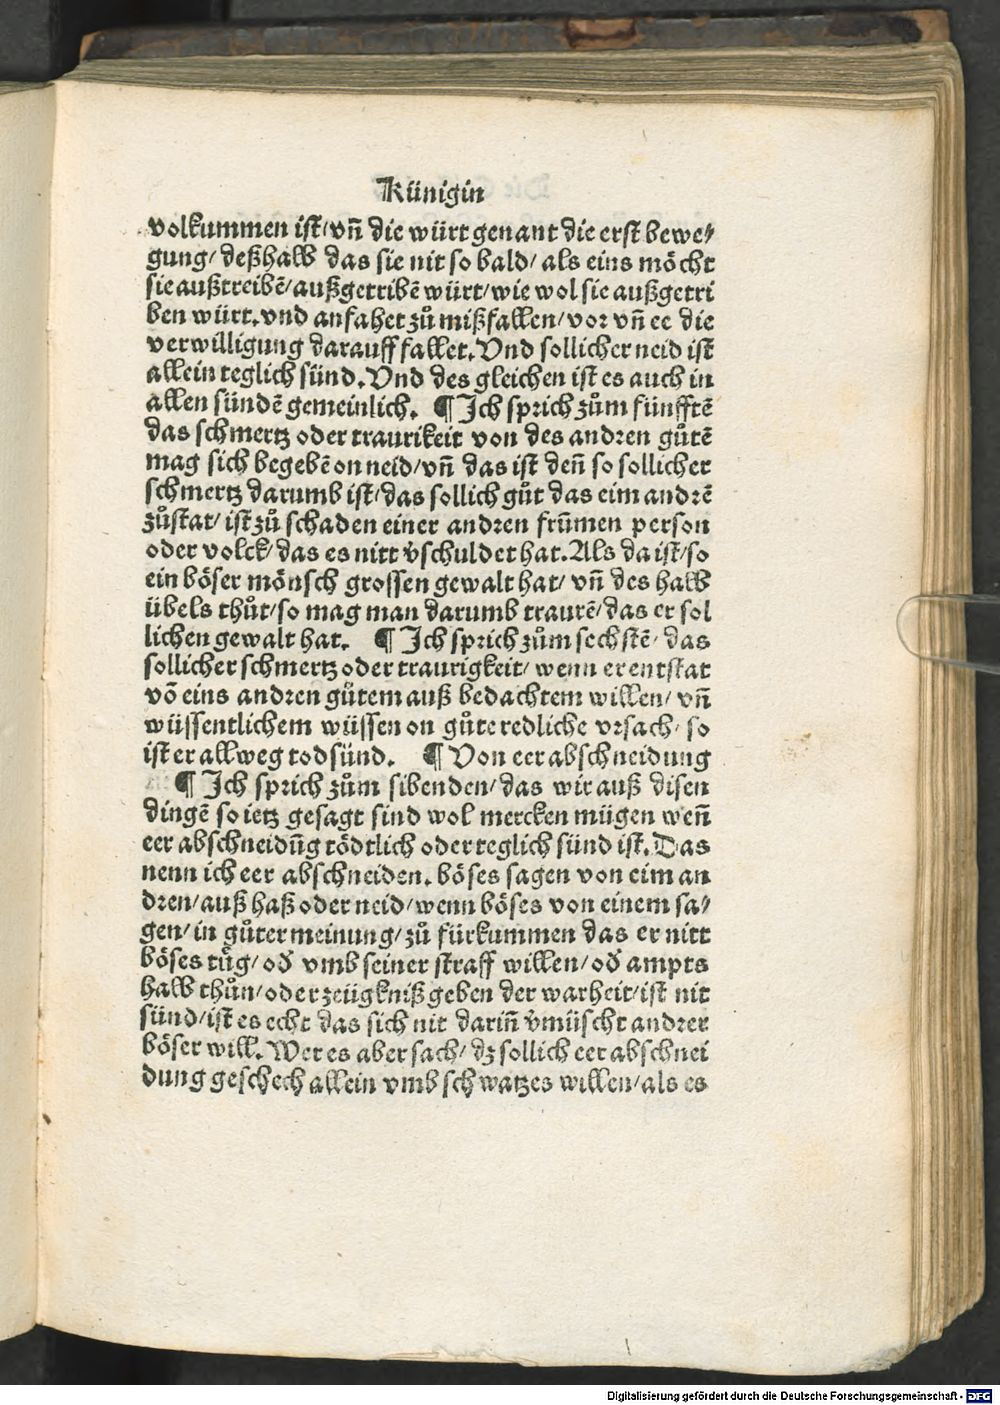 Künigin
volkummen ist/ vñ die würt genant die erst bewe/
gung/ deßhalb das sie nit so bald/ als eins möcht
sie außtreibẽ/ außgetribẽ würt/ wie wol sie außgetri
ben würt. vnd anfahet zů mißfallen/ vor vñ ee die
verwilligung darauff fallet. Vnd sollicher neid ist
allein teglich sünd. Vnd des gleichen ist es auch in
allen sündẽ gemeinlich. ¶ Ich sprich zům fünfftẽ
das schmertz oder traurikeit von des andren gůtẽ
mag sich begebẽ on neid/ vñ das ist deñ so sollicher
schmertz darumb ist/ das sollich gůt das eim andrẽ
zůstat/ ist zů schaden einer andren frũmen person
oder volck/ das es nitt v̓schuldet hat. Als da ist/ so
ein böser mönsch grossen gewalt hat/ vñ des halb
übels thůt/ so mag man darumb traurẽ/ das er sol
lichen gewalt hat. ¶ Ich sprich zům sechstẽ/ das
sollicher schmertz oder traurigkeit/ wenn er entstat
võ eins andren gůtem auß bedachtem willen/ vñ
wüssentlichem wüssen on gůte redliche vrsach/ so
ist er allweg todsünd. ¶ Von eer abschneidung
¶ Ich sprich zům sibenden/ das wir auß disen
dingẽ so ietz gesagt sind wol mercken mügen weñ
eer abschneidũg tödtlich oder teglich sünd ist. Das
nenn ich eer abschneiden. böses sagen von eim an
dren/ auß haß oder neid/ wenn böses von einem sa/
gen/ in gůter meinung/ zů fürkummen das er nitt
böses tůg/ oď vmb seiner straff willen/ oď ampts
halb thůn/ oder zeügkniß geben der warheit/ ist nit
sünd/ ist es echt das sich nit dariñ v̓müscht andrer
böser will. Wer es aber sach/ dz sollich eer abschnei
dung geschech allein vmb schwatzes willen/ als es
Digitalisierung gefördert durch die Deutsche Forschungsgemeinschaft - DFG